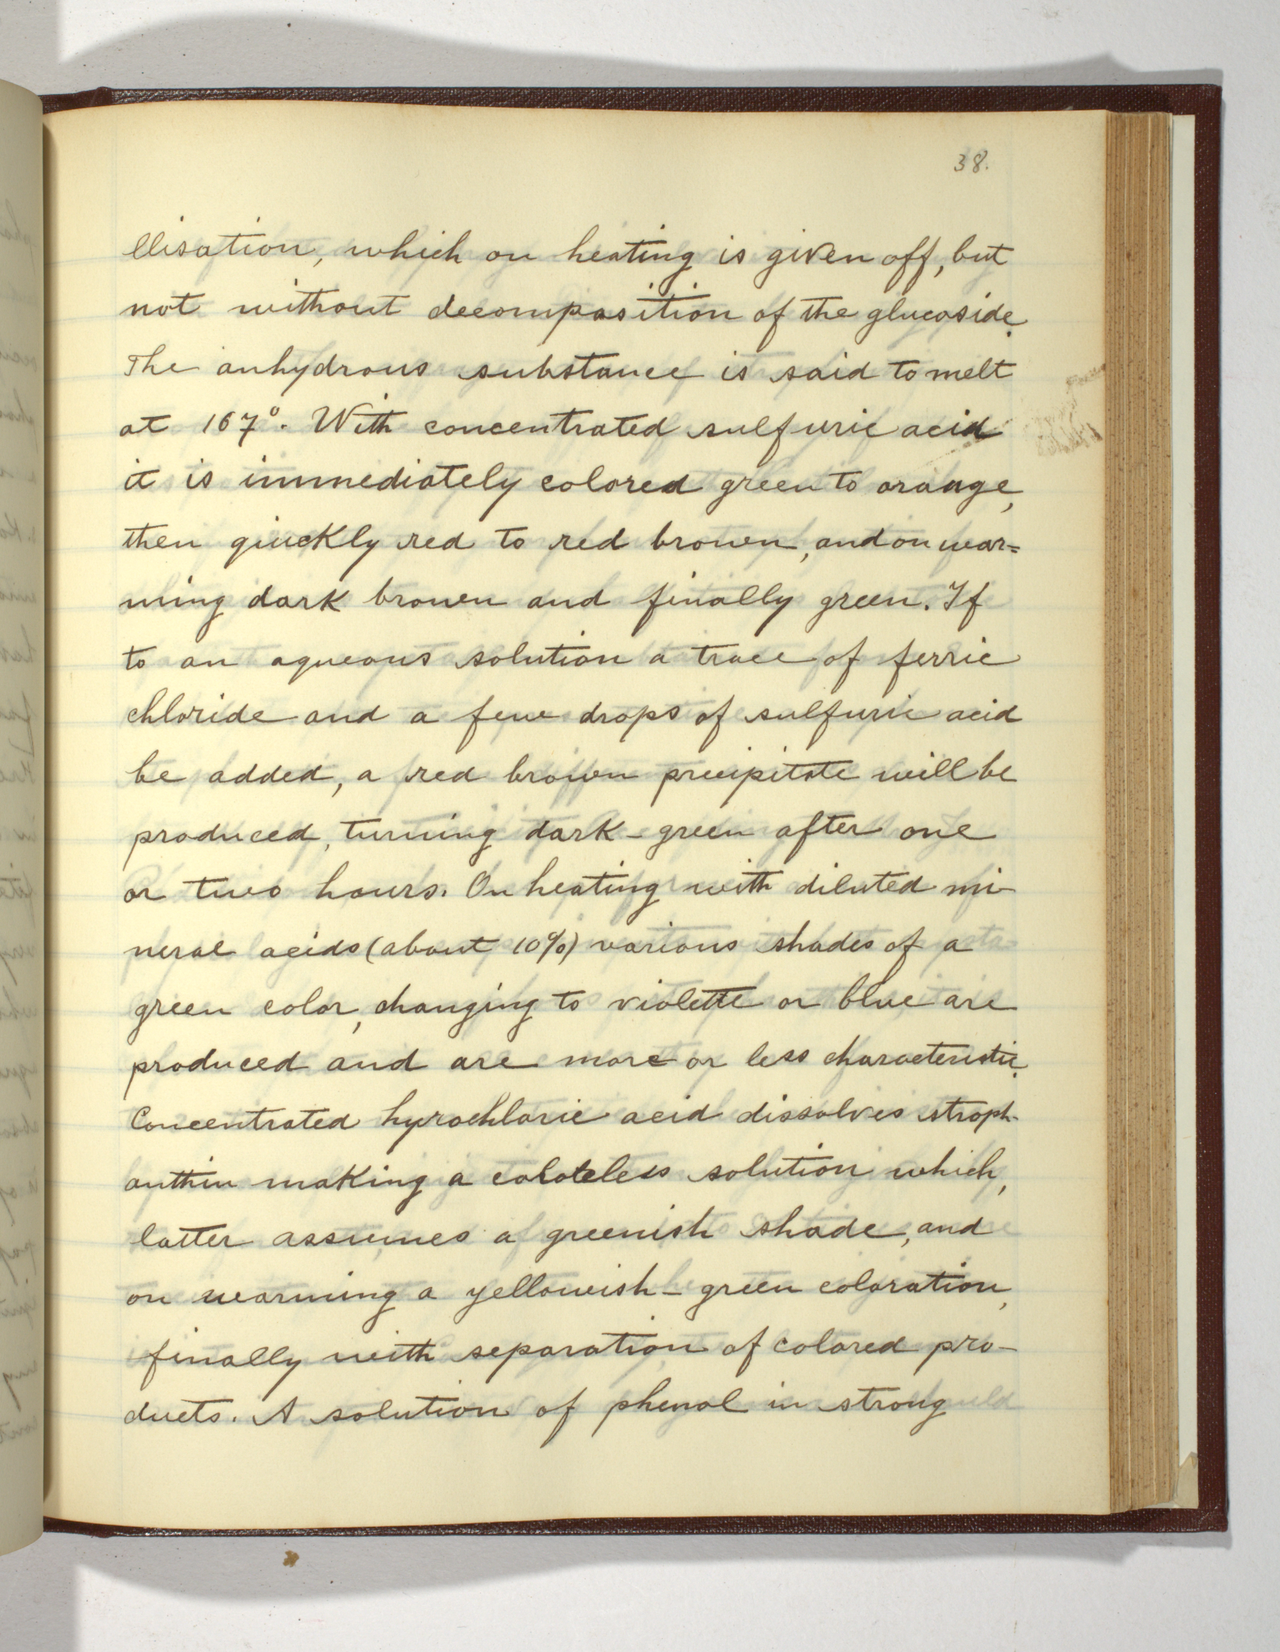 38.
llisation, which on heating is given off, but
not without decomposition of the glucoside.
The anhydrous substance is said to melt
at 167°. With concentrated sulfuric acid
it is immediately colored green to orange,
then qiuckly red to red brown, and on war=
ming dark brown and finally green. If
to an aqueous solution a trace of ferric
chloride and a few drops of sulfuric acid
be added, a red brown precipitate will be
produced, turning dark-green after one
or two hours. On heating with diluted mi-
neral acids (about 10%) various shades of a
green color, changing to violette or blue are
produced and are more or less characteristic.
Concentrated hyrochloric acid dissolves stroph-
anthin making a colorless solution which,
latter assumes a greenish shade, and
on warming a yellowish-green coloration,
finally with separation of colored pro-
ducts. A solution of phenol in strong